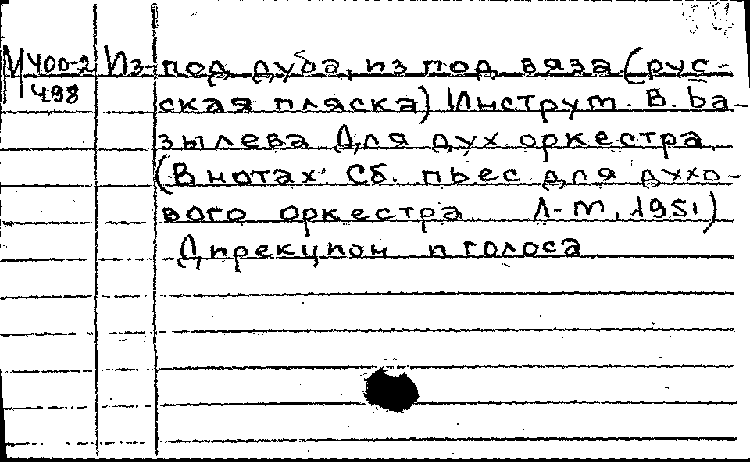 М 400-2 Из-под дуба, из под вяза (рус-
498 ская пляска) Инструм. В. Ба-
зылева Для дух оркестра
(В нотах: Сб. пьес для духо-
вого оркестра Л-М, 1951)
Дирекцион и голоса